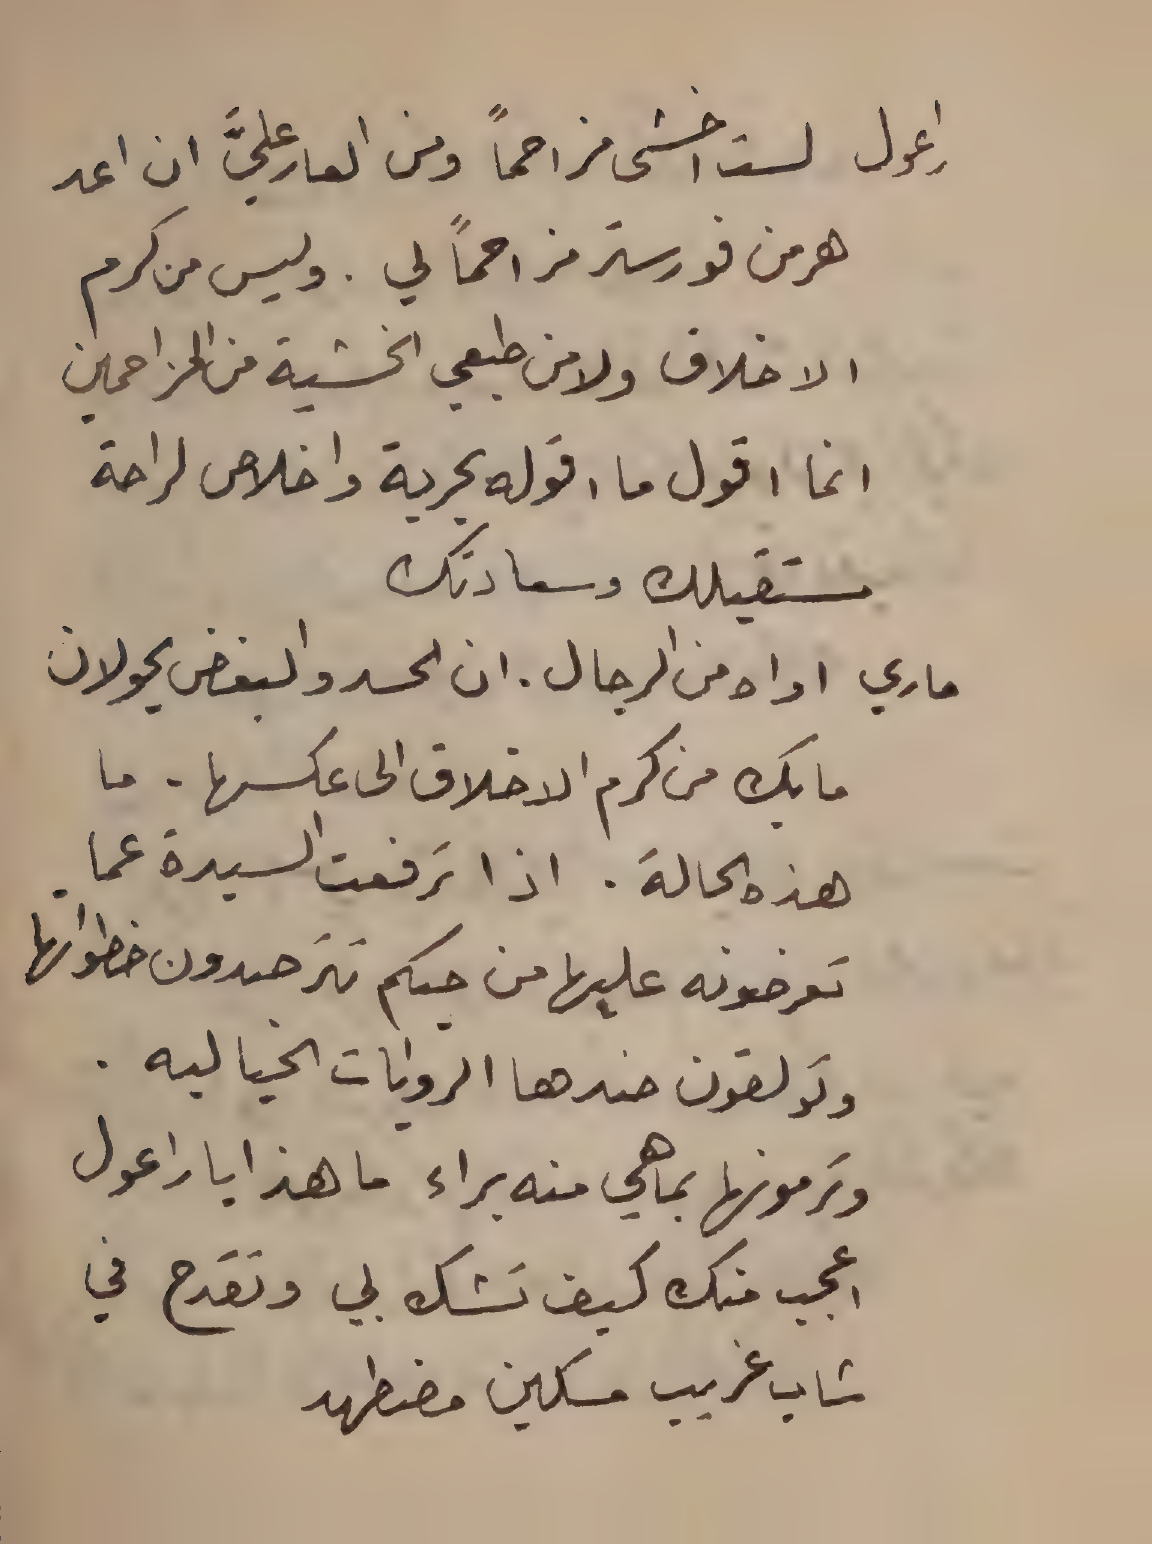 راعول لست اخشى مزاحماً ومن العار عليَّ ان اعد
هرمن فورستر مزاحماً لي . وليس من كرم
الاخلاق ولا من طبعي الخشية من المزاحمين
انما اقول ما اقوله بحرية واخلاص لراحة
مستقبلك وسعادتك
ماري اواه من الرجال . ان الحسد والبغض يحولان
ما بك من كرم الاخلاق الى عكسها . ما
هذه الحالة . اذا ترفعت السيدة عما
تعرضونه عليها من حبكم تترصدون خطواتها
وتولفون ضدها الروايات الخياليه .
وترمونها بما هي منه براء ما هذا يا راعول
اعجب منك كيف تشك بي وتقدح في
شاب غريب مسكين مضطهد